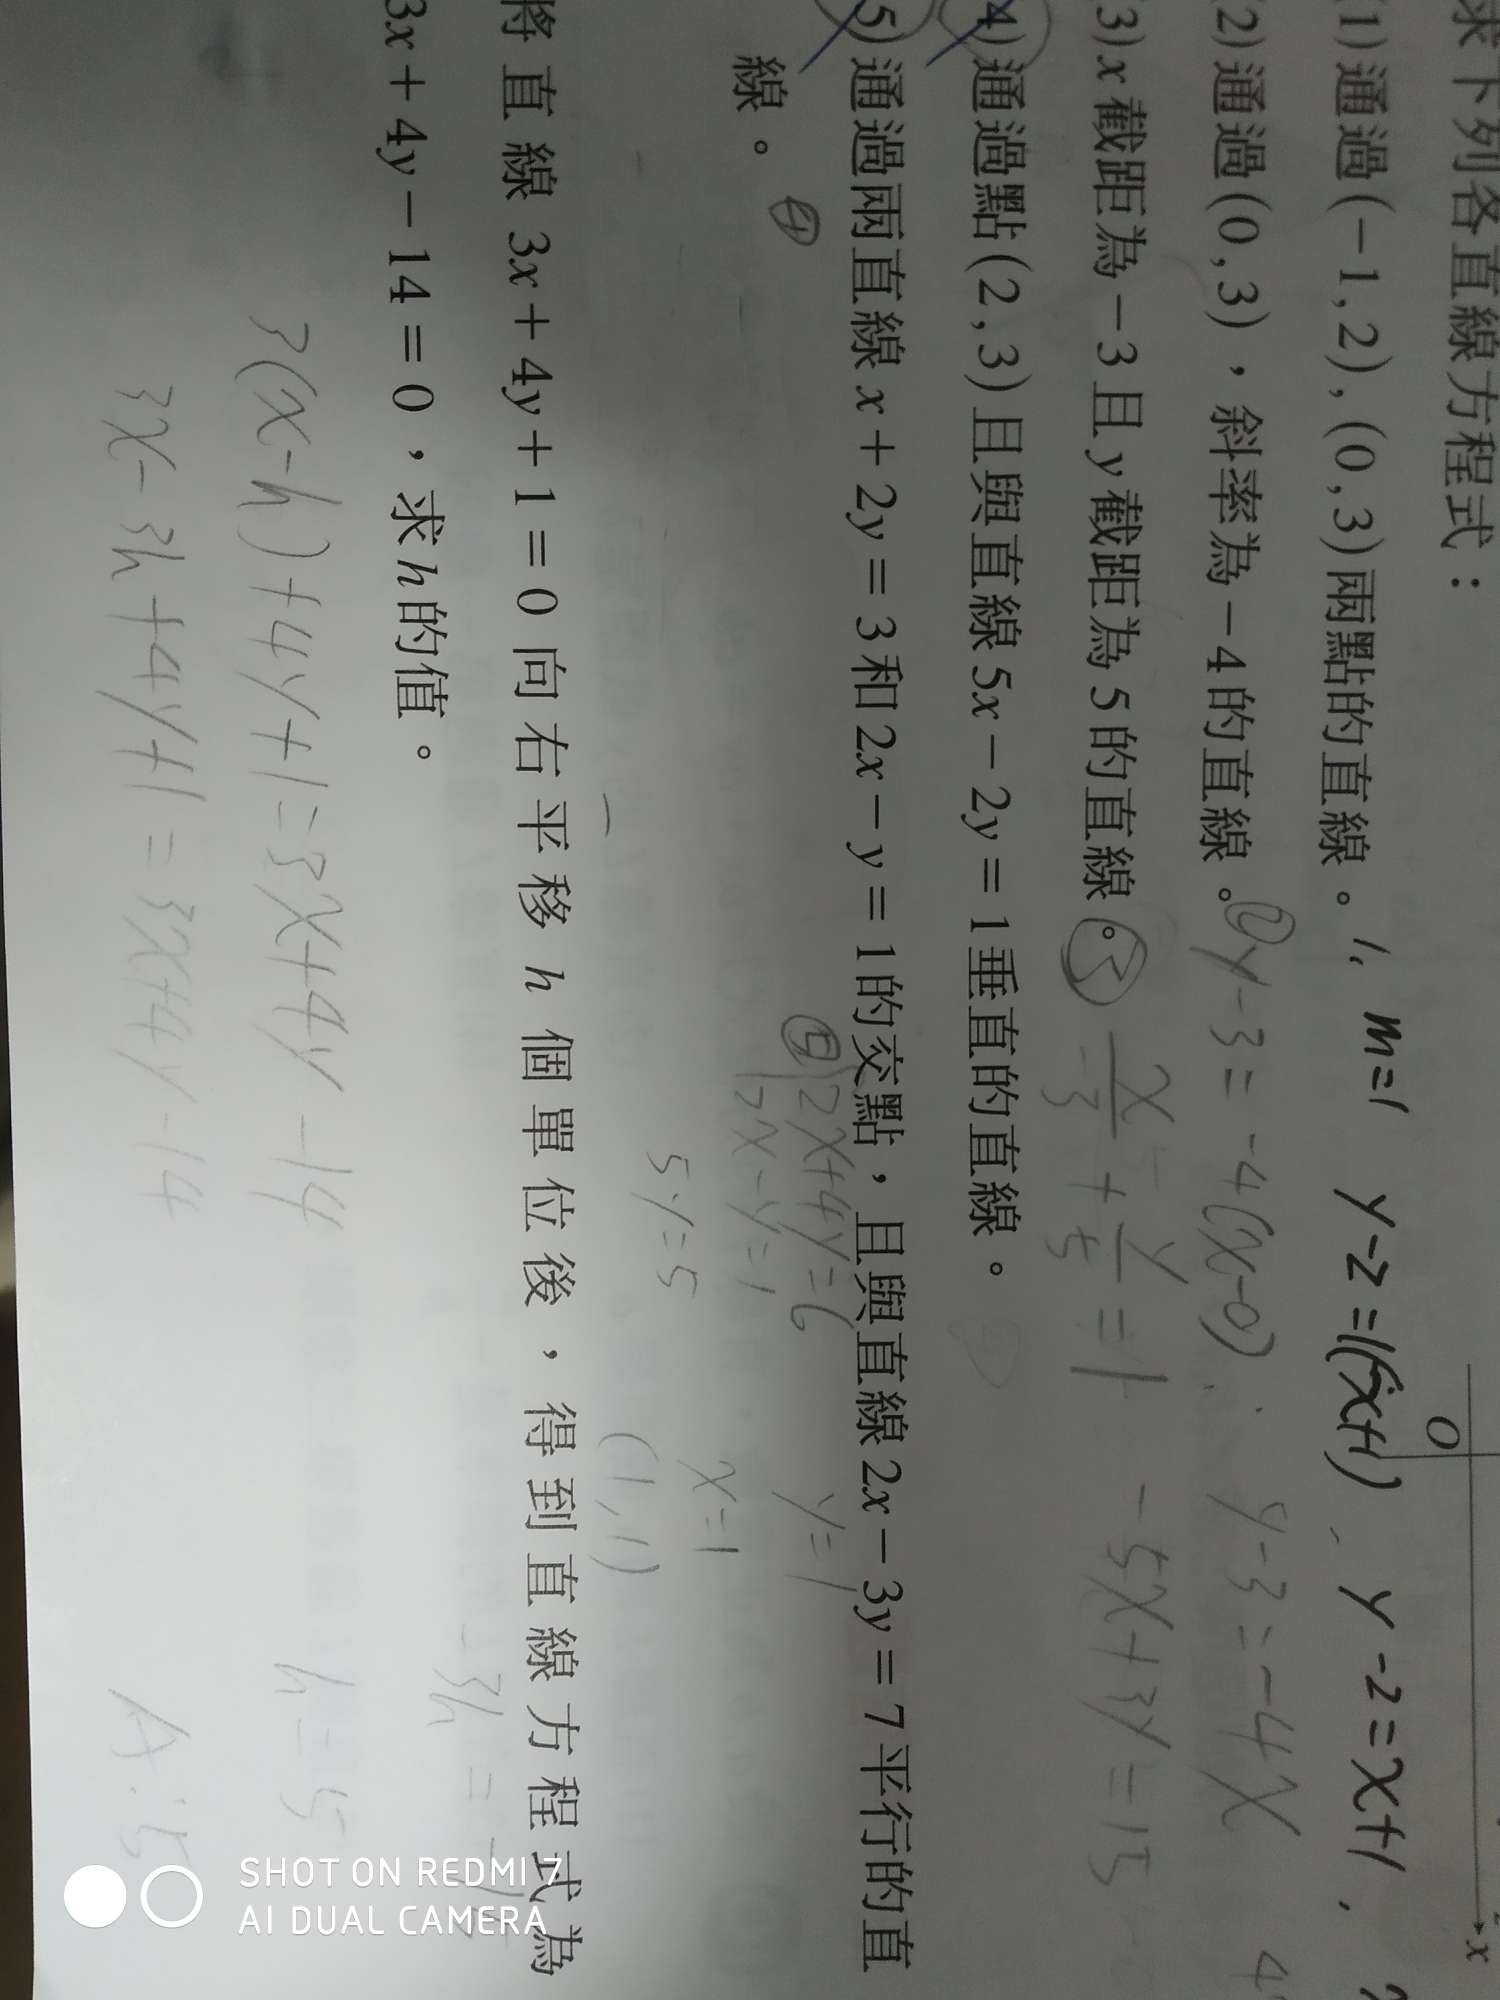 求下列各直線方程式：
(1)通過(−1,2),(0,3)兩點的直線。 1. m=1 y-2=1(x+1) y-2=x+1,
(2)通過(0,3)，斜率為−4的直線。② y-3=-4(x-0) y-3=-4x
(3)x截距為−3且y截距為5的直線。③ x/-3 + y/5 = 1 -5x+3y=15
4)通過點(2,3)且與直線5x−2y=1垂直的直線。
5)通過兩直線x+2y=3和2x−y=1的交點，且與直線2x−3y=7平行的直
線。 ④
2x+4y=6 y=1
2x-y=1 x=1
5y=5 (1,1)
將直線3x+4y+1=0向右平移h個單位後，得到直線方程式為
3x+4y−14=0，求h的值。
3(x-h)+4y+1=3x+4y-14 h=5
3x-3h+4y+1=3x+4y-14 A:5
O
x
SHOT ON REDMI 7
AI DUAL CAMERA